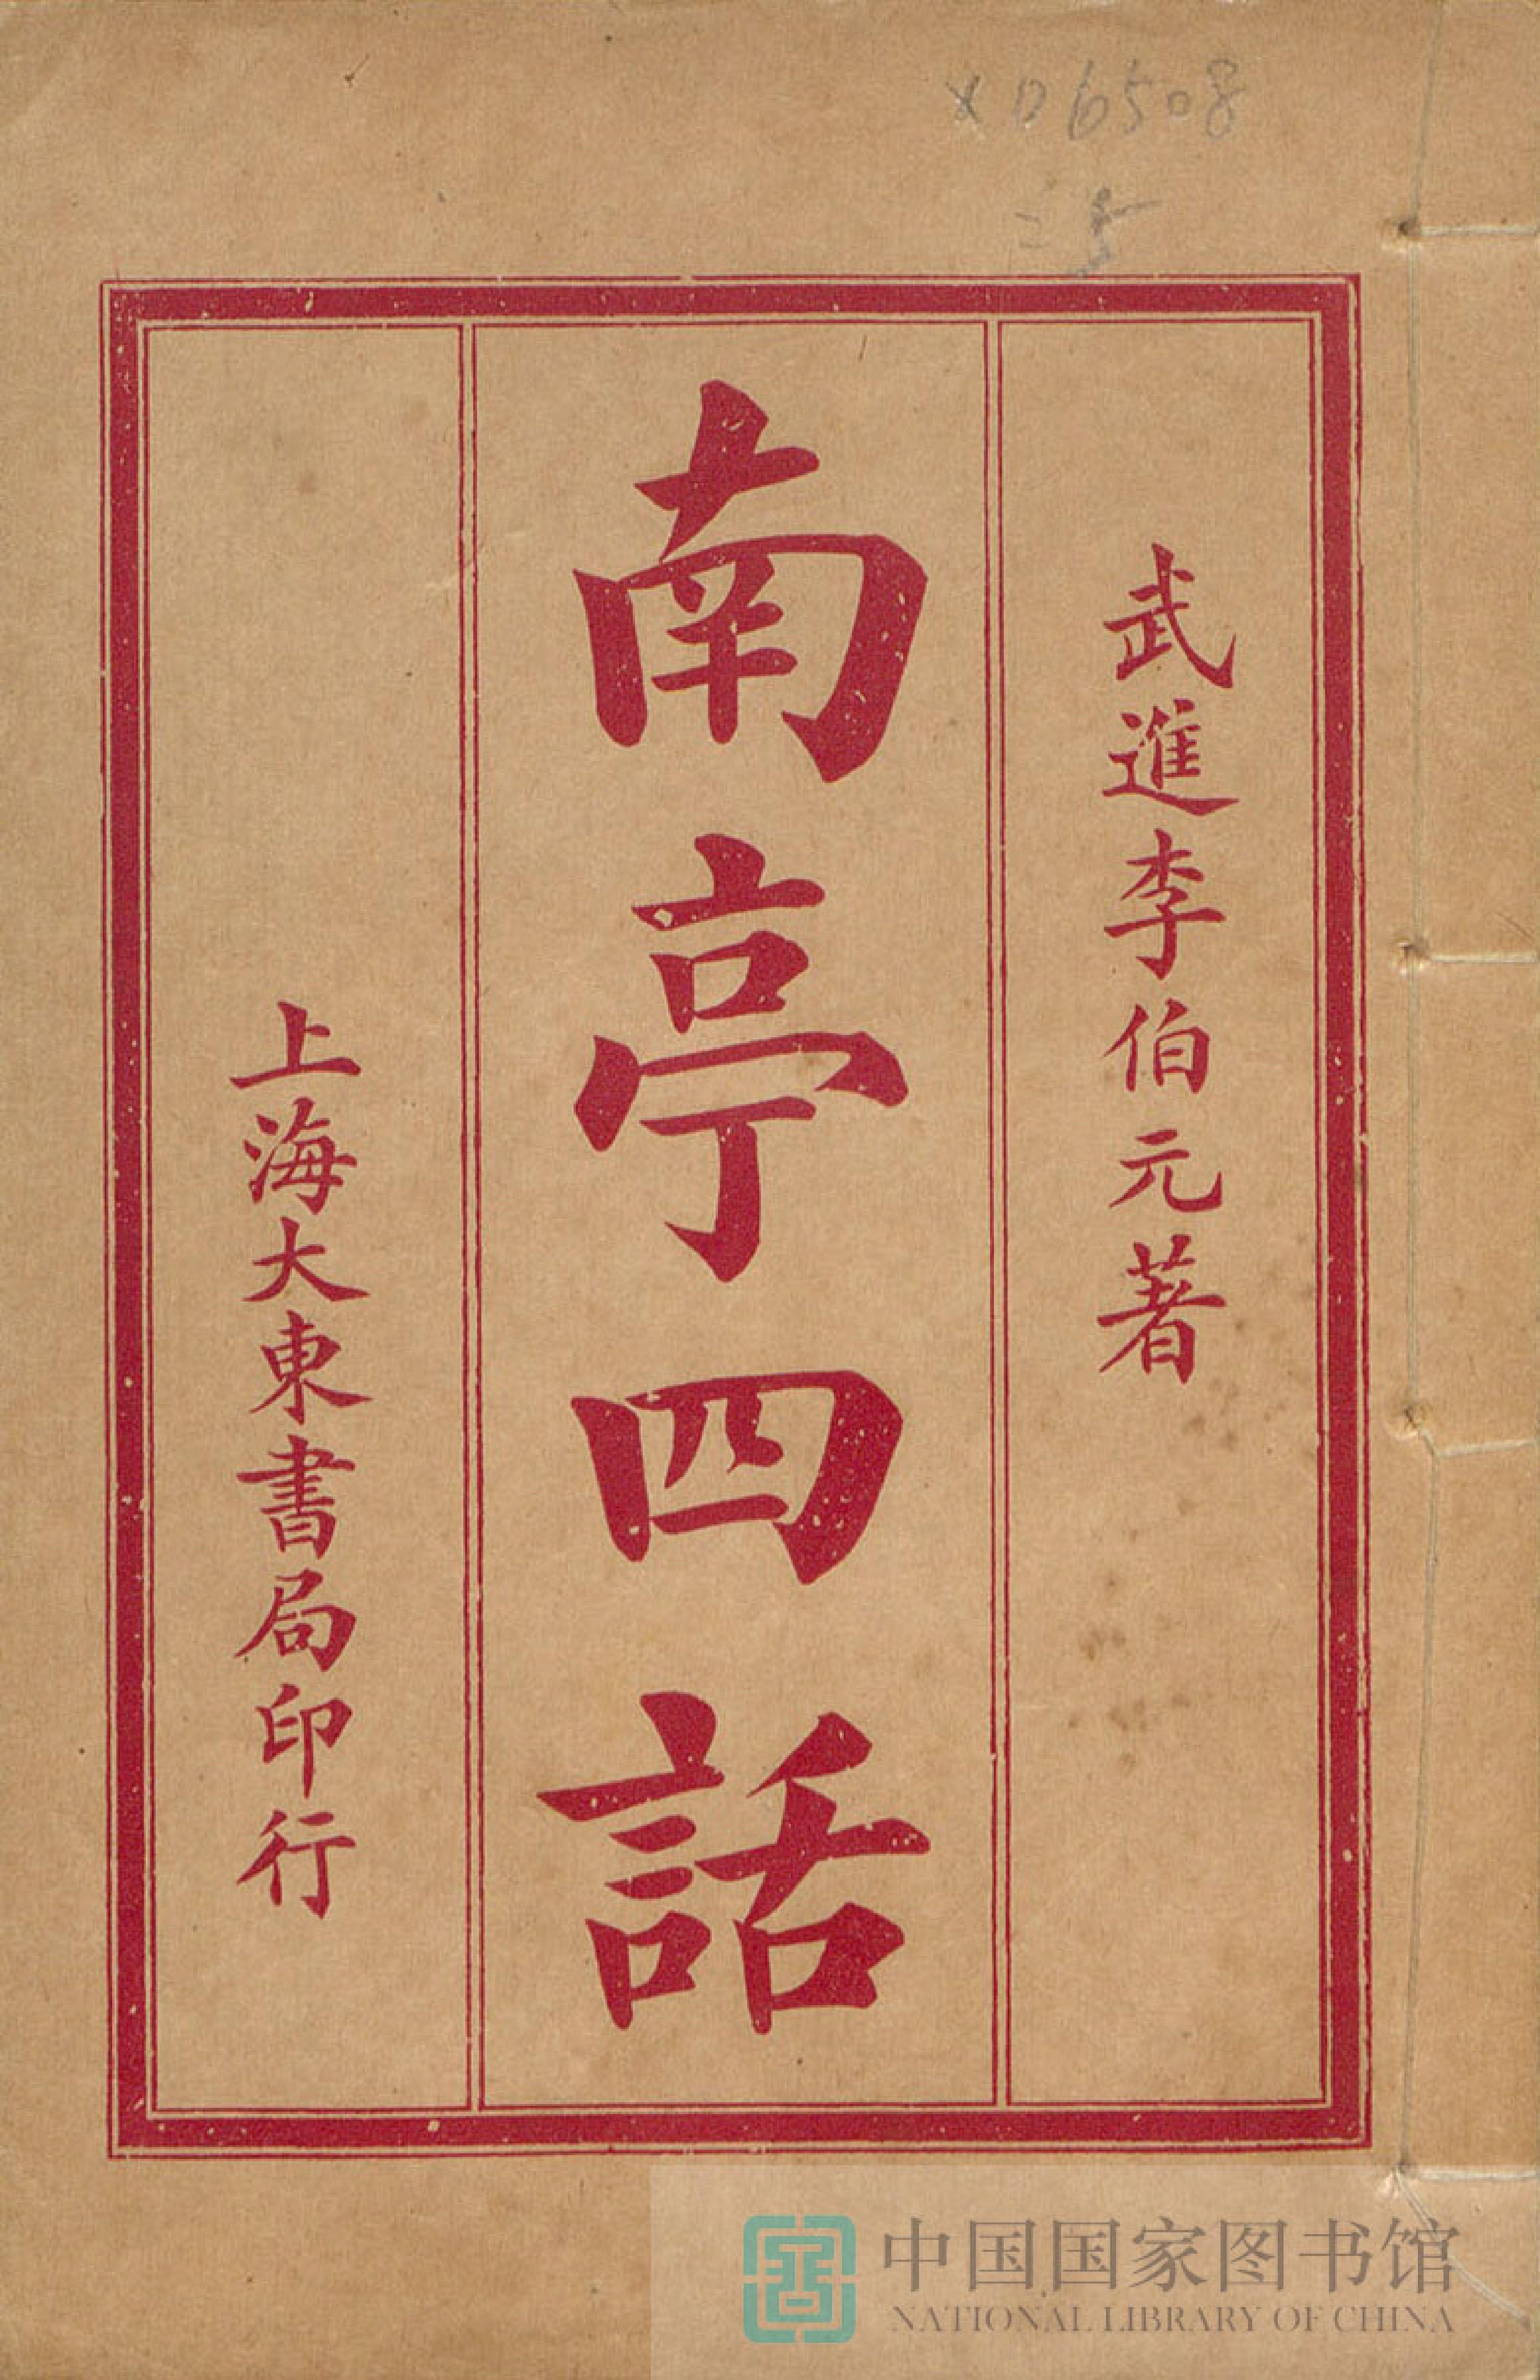 XD6508
二5
武進李伯元著
南亭四話
上海大東書局印行
中国国家图书馆
NATIONAL LIBRARY OF CHINA